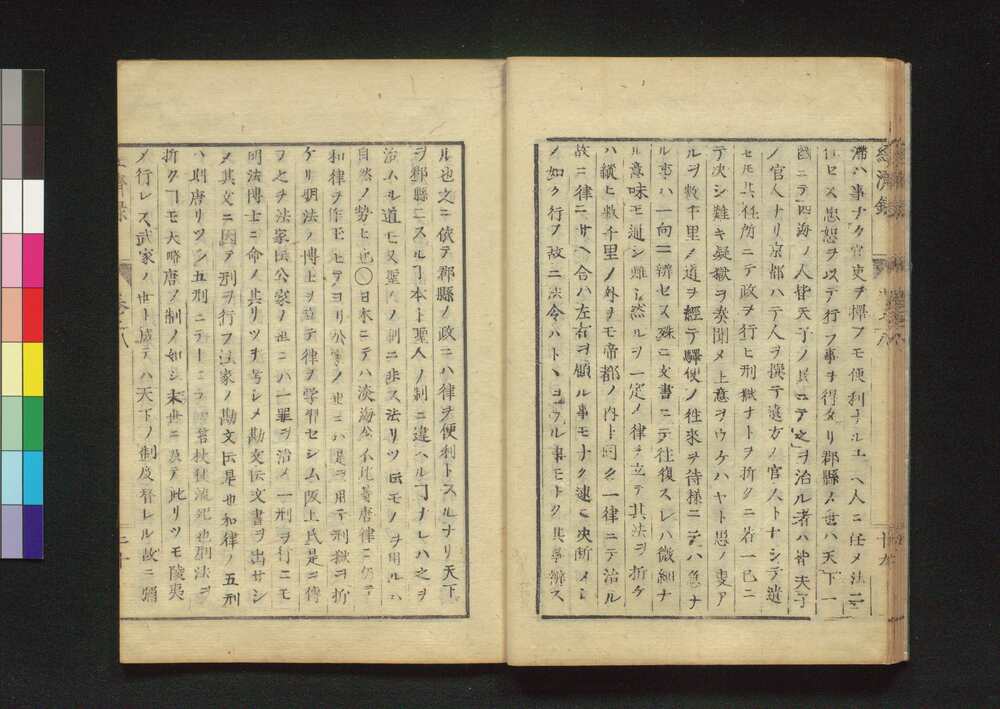 滞ハ事ナク官吏ヲ擇フモ便利ナル上ヘ人ニ任メ法ニ
任セス忠恕ヲ以テ行フ事ヲ得タリ郡縣ノ世ハ天下一
國ニテ四海ノ人皆天子ノ民ニテ之ヲ治ル者ハ皆天子
ノ官人ナリ京都ハテ人ヲ撰テ遠方ノ官人トナシテ遣
セルモ其任所ニテ政ヲ行ヒ刑獄ナトヲ折クニ若一已ニ
テ決シ難キ疑獄ヲ奏聞メ上意ヲウケハヤト思ノ叓ア
ルヲ数千里ノ道ヲ經テ驛使ノ往來ヲ待様ニテハ急ナ
ル事ハ一向ニ辨セス殊ニ文書ニテ往復スレハ微細ナ
ル意味モ通シ難シ然ルヲ一定ノ律ヲ立テ其法ヲ折ケ
ハ縦ヒ数千里ノ外ヲモ帝都ノ内ト同ク一律ニテ治ル
故ニ律ニサヘ合ハ左右ヲ顧ル事モナク速ニ決断メ
ノ如ク行フ故ニ法令ハトヽヨウル事モトク其事辨ス
ル也之ニ依テ郡縣ノ政ニハ律ヲ便利トスルナリ天下
ヲ郡縣ニスルヿ本ト聖人ノ制ニ違ヘルヿナレハ之ヲ
治ムル道モ又聖人ノ制ニ非ス法リツ伝モノヲ用ルハ
自然ノ勢ヒ也〇日本ニテハ淡海公不比等唐律ニ
和律ヲ作モヒテヨリ公家ノ世ニハ是ニ用テ刑獄ヲ折
ケリ明法ノ博士ヲ立テ律ヲ学習セシム阪上氏是ニ傳
ヲ之ヲ法家伝公家ノ世ニハ一罪ヲ治メ一刑ヲ行ニモ
明法博士ニ命ノ其リツヲ考シメ勘文伝文書ヲ出サシ
メ其文ニ因テ刑ヲ行フ法家ノ勘文伝是也和律ノ五刑
ハ則唐リツノ五刑ニテ笞杖徒流死也刑法ヲ
折クヿモ大略唐ノ制ノ如シ末世ニ及テ此リツモ陵夷
ノ行レス武家ノ世ト成テハ天下ノ制度替レル故ニ彌